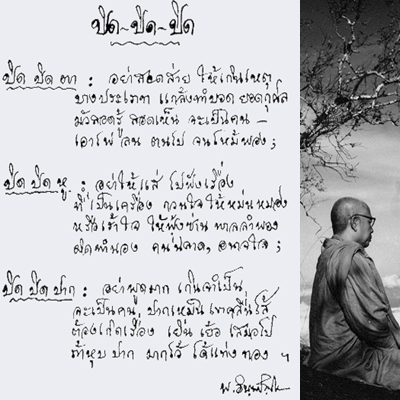 ปิด-ปิด-ปิด
ปิด ปิด ตา : อย่าสอดส่าย ให้เกินเหตุ
บางประเภท แกล้งทำบอด ยอดกุศล
มัวสอดรู้ สอดเห็น จะเป็นคน
เอาไฟ ลน ตนไป จนไหม้พอง ;
ปิด ปิด หู : อย่าให้แส่ ไปฟังเรื่อง
ที่เป็นเครื่อง กวนใจ ให้หม่นหมอง
หรือเร้าใจ ให้ฟุ้งซ่าน พาลลำพอง
ผิดทำนอง คนฉลาด, อนาถใจ ;
ปิด ปิด ปาก : อย่าพูดมาก เกินจำเป็น
จะเป็นคน, ปากเหม็น เขาคลื่นไส้
ต้องเกิดเรื่อง เยิ่น เย้อ เสมอไป
ถ้าหุบ ปาก มากไว้ ได้แท่ง ทอง ฯ
พ. อินทปัญโญ